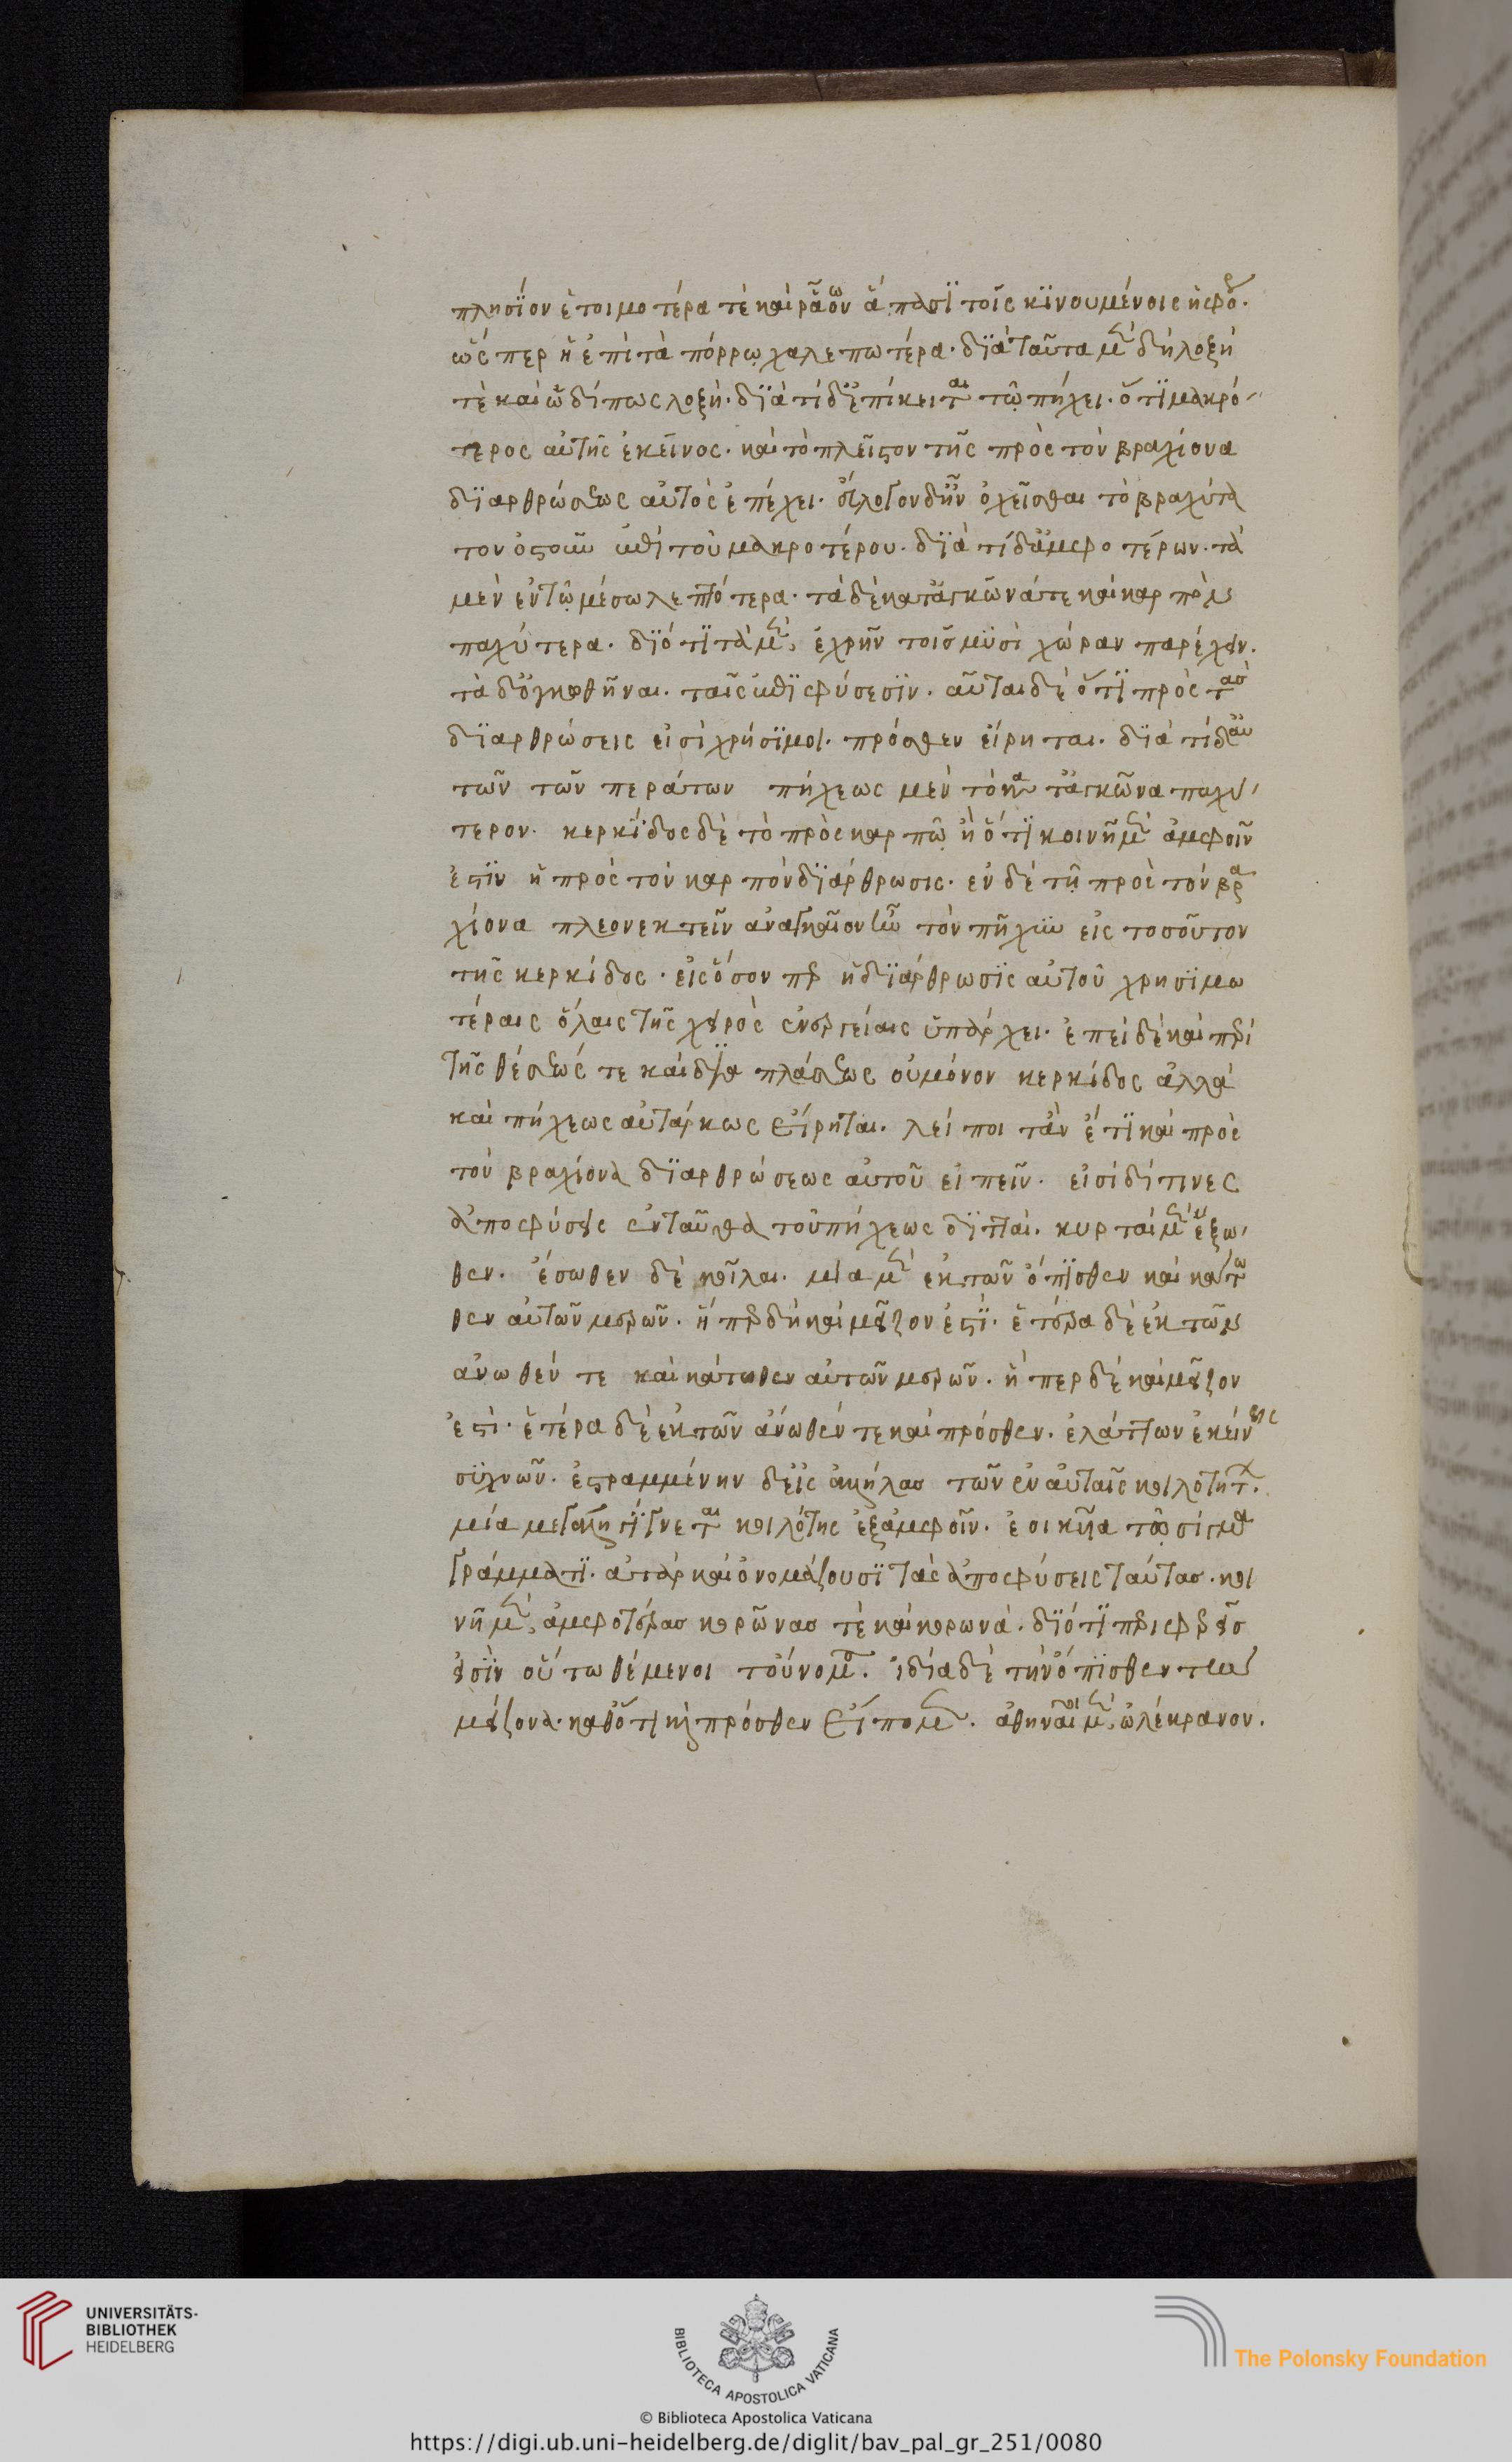 πλησίον ἑτοιμοτέρα τὲ καὶ ῥάων ἅπασι τοῖς κινουμένοις ἡ φορά.
ὥσπερ ἡ ἐπὶ τὰ πόρρω χαλεπωτέρα. διὰ ταῦτα μὲν δὴ λοξή
τὲ καὶ ὧδί πως λοξή. διὰ τί δ' ἐπίκειται τῷ πήχει. ὅτι μακρό-
τερος αὐτῆς ἐκεῖνος. καὶ τὸ πλεῖστον τῆς πρὸς τὸν βραχίονα
διαρθρώσεως αὐτὸς ἐπέχει. εὔλογον δ' ἦν ὀχεῖσθαι τὸ βραχύτα
τον ὀστοῦν ἐπὶ τοῦ μακροτέρου. διὰ τί δ' ἀμφοτέρων. τὰ
μὲν ἐν τῷ μέσῳ λεπτότερα. τὰ δὲ κατ' ἀγκῶνά τε καὶ καρπὸν
παχύτερα. διότι τὰ μὲν, ἐχρῆν τοῖς μυσὶ χώραν παρέχειν.
τὰ δ' ὀγκωθῆναι. ταῖς ἐπιφύσεσιν. αὗται δὲ ὅτι πρὸς τὰς
διαρθρώσεις εἰσὶ χρήσιμοι. πρόσθεν εἴρηται. διὰ τί δ' αὖ
τῶν τῶν περάτων πήχεως μὲν τὸ κατ' ἀγκῶνα παχύ-
τερον. κερκίδος δὲ τὸ πρὸς καρπῷ ἢ ὅτι κοινὴ μὲν ἀμφοῖν
ἐστὶν ἡ πρὸς τὸν καρπὸν διάρθρωσις. ἐν δὲ τῇ πρὸς τὸν βρα
χίονα πλεονεκτεῖν ἀναγκαῖον ἦν τὸν πῆχυν εἰς τοσοῦτον
τῆς κερκίδος. εἰς ὅσον περ ἡ διάρθρωσις αὐτοῦ χρησιμω
τέραις ὅλαις τῆς χειρὸς ἐνεργείαις ὑπάρχει. ἐπεὶ δὲ καὶ περὶ
τῆς θέσεώς τε καὶ διαπλάσεως οὐ μόνον κερκίδος ἀλλὰ
καὶ πήχεως αὐτάρκως εἴρηται. λείποι τ' ἂν ἔτι καὶ πρὸς
τὸν βραχίονα διαρθρώσεως αὐτοῦ εἰπεῖν. εἰσὶ δί τινες
ἀποφύσεις ἐνταῦθα τοῦ πήχεως διτταί. κυρταὶ μὲν ἔξω-
θεν. ἔσωθεν δὲ κοῖλαι. μία μὲν ἐκ τῶν ὄπισθεν καὶ κάτω
θεν αὐτῶν μερῶν. ἥπερ δὴ καὶ μεῖζον ἐστί. ἑτέρα δὲ ἐκ τῶν
ἄνωθέν τε καὶ κάτωθεν αὐτῶν μερῶν. ἥπερ δὲ καὶ μεῖζον
ἐστὶ. ἑτέρα δὲ ἐκ τῶν ἄνωθέν τε καὶ πρόσθεν. ἐλάττων ἐκείνης
συχνῶν. ἐστραμμένην δ' εἰς ἀλλήλας τῶν ἐν αὐταῖς κοιλοτήτων.
μία μεγάλη τι γίνεται κοιλότης ἐξ ἀμφοῖν. ἐοικυῖα τῷ σίγμα
γράμματι. ἀτὰρ καὶ ὀνομάζουσι τὰς ἀποφύσεις ταύτας. κοι
νῇ μὲν, ἀμφοτέρας κορώνας τὲ καὶ κορωνά. διότι περιφερεῖς
εἰσὶν οὕτω θέμενοι τοὔνομα. ἰδίᾳ δὲ τὴν ὄπισθεν τὴν
μείζονα. καθότι καὶ πρόσθεν εἴπομεν. ἀθηναῖοι μὲν, ὠλέκρανον.
UNIVERSITÄTS-
BIBLIOTHEK
HEIDELBERG
BIBLIOTECA APOSTOLICA VATICANA
The Polonsky Foundation
© Biblioteca Apostolica Vaticana
https://digi.ub.uni-heidelberg.de/diglit/bav_pal_gr_251/0080